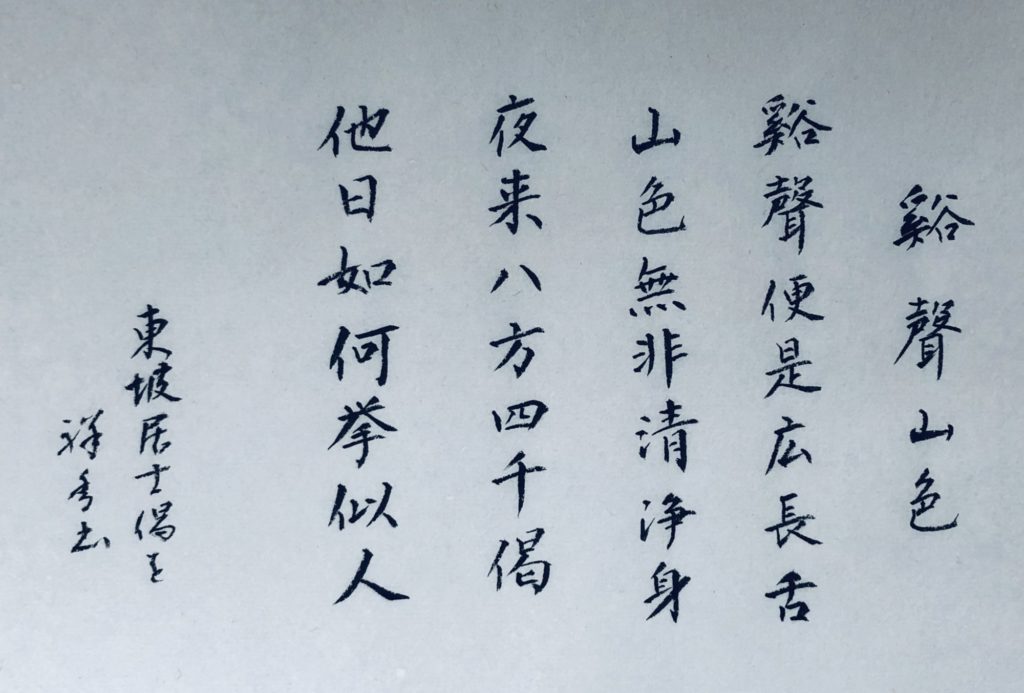 谿聲山色
谿聲便是広長舌
山色無非清浄身
夜来八方四千偈
他日如何挙似人
東坡居士偈を
祥秀書